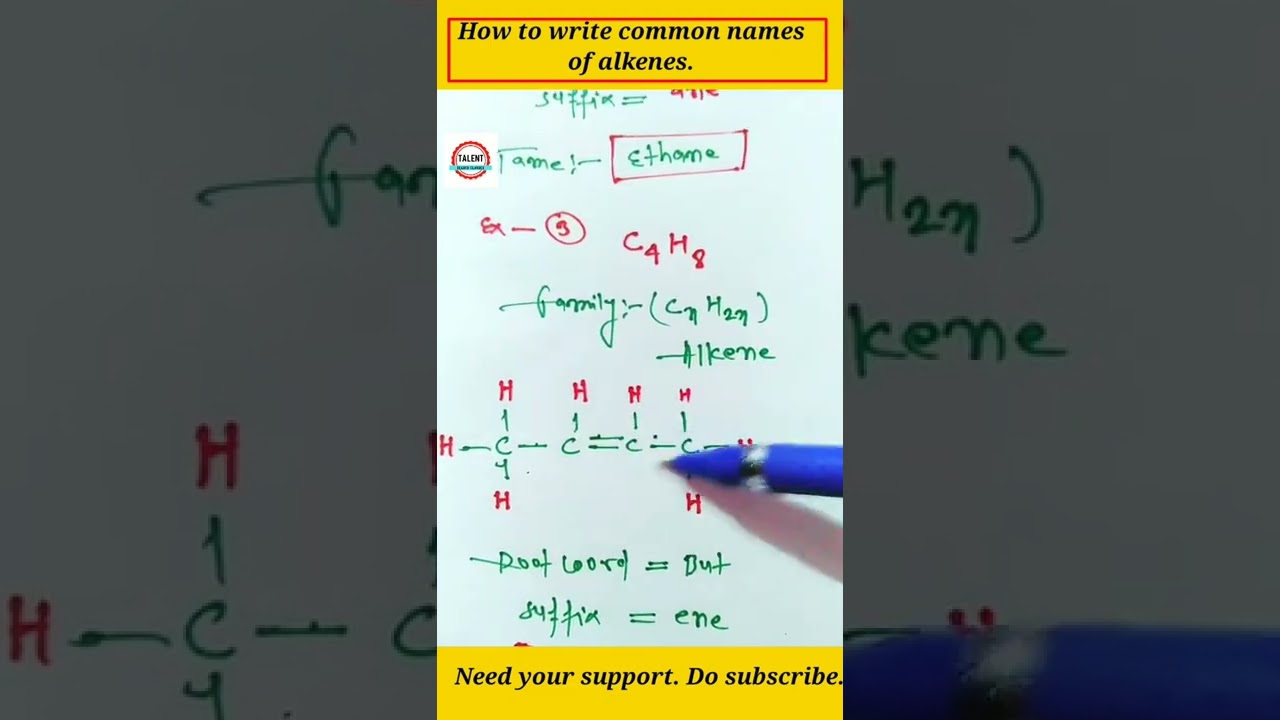 How to write common names
of alkenes.
suffix = ane
TALENT
Name:- Ethane
Ex - 3 C4H8
Family:- (CnH2n)
Alkene
H H H H
H - C - C = C - C - H
H H
Root word = But
suffix = ene
Need your support. Do subscribe.